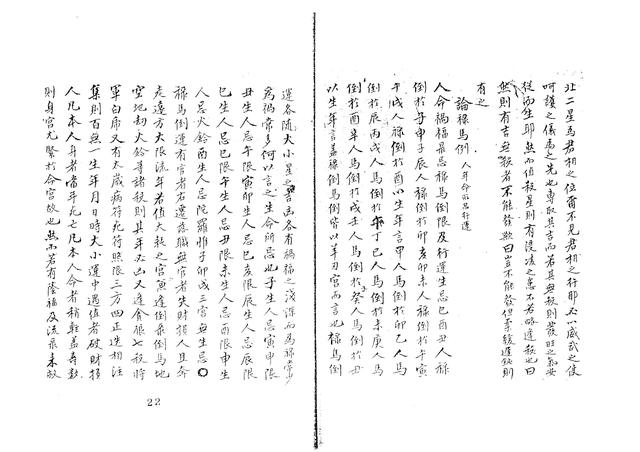 北二星為君相之位爾不見君相之行耶必以威武之使
呵護之儀為之先也專取其吉而若其無殺則發旺之氣安
從而生耶無而值殺星則有浸淩之患不若略逢殺也曰
然則有吉無殺者不能發歟曰豈不能發但享緩遲鈍則
有之
論祿馬例 人年命所忌行運
人命禍福最忌祿馬倒限及行運生忌巳丑人祿
倒於寅申子辰人祿倒於卯亥卯未人祿倒於午寅
午戌人祿倒於酉以生年言甲人馬倒於卯乙人馬
倒於辰丙戊人馬倒於午丁巳人馬倒於未庚人馬
倒於酉辛人馬倒於戌壬人馬倒於子癸人馬倒於丑
以生年言蓋祿倒馬倒皆以羊刃宮而言也祿馬倒
運各隨大小星之吉凶各有禍福之淺深而為祿常少
為禍常多何以言之生命所忌也子生人忌寅申限
丑生人忌午限寅卯生人忌巳亥限辰生人忌辰限
巳生人忌巳限午生人忌丑限未生人忌酉限申生
人忌火鈴酉生人忌陀羅惟子卯戌三宮無生忌○
祿馬倒運有官者右遷落職無官者失財損人且奔
走遠方大限流年若值大耗之宮寅逢倒祿倒馬地
空地劫火鈴等諸殺則其年必凶又逢貪狼七殺將
軍白席又有太歲病符死符照限三方四正逃相注
集則百無一生年月日時大小運中遇值者破財損
人凡本人身者當年死亡凡本人命者稍輕蓋壽數
則身宮尤緊於命宮故也然而若有蔭福及流祿来故
22